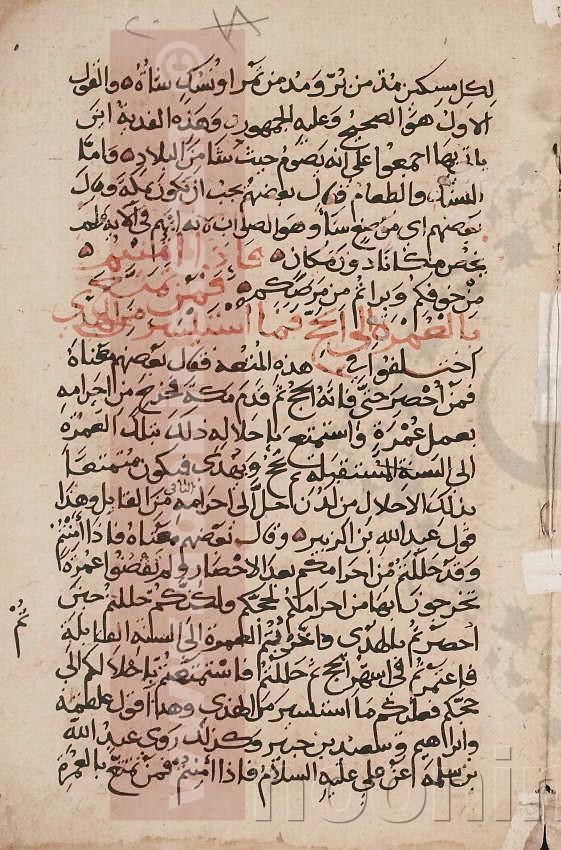 لكل مسكين مد من بر ومد من تمر او نسك شاة والقول
الاول هو الصحيح وعليه الجمهور وهذه الفدية اين
ياتي بها اجمعوا على انه يصوم حيث شا من البلاد واما
النسك والطعام فقال بعضهم يجب ان يكون بمكة وقال
بعضهم اي موضع شا وهو الصواب لانه ابهم في الاية ولم
يخص مكانا دون مكان فاذا امنتم
من خوفكم وبراتم من مرضكم فمن تمتع
بالعمرة الى الحج فما استيسر من الهدي
اختلفوا في هذه المتعة فقال بعضهم معناه
فمن احصر حتى فاته الحج ثم قدم مكة فخرج من احرامه
بعمل عمرة واستمتع باحلاله ذلك بتلك العمرة
الى السنة المستقبلة ثم يحج ويهدي فيكون متمتعا
بذلك الاحلال من لدن احل الى احرامه الثاني من القابل وهذا
قول عبد الله بن الزبير وقال بعضهم معناه فاذا امنتم
وقد حللتم من احرامكم بعد الاحصار ولم تقضوا عمرة
تخرجون بها من احرامكم لحجكم ولكنكم حللتم حين
احصرتم بالهدي واخرتم العمرة الى السنة القابلة
فاعتمرتم في اشهر الحج ثم حللتم فاستمتعتم باحلالكم الى
حجكم فعليكم ما استيسر من الهدي وهذا قول علقمة
وابراهيم وسعيد بن جبير وكذلك روى عبد الله
بن سلمة عن علي عليه السلام فاذا امنتم فمن تمتع بالعمرة
ثم
noorin